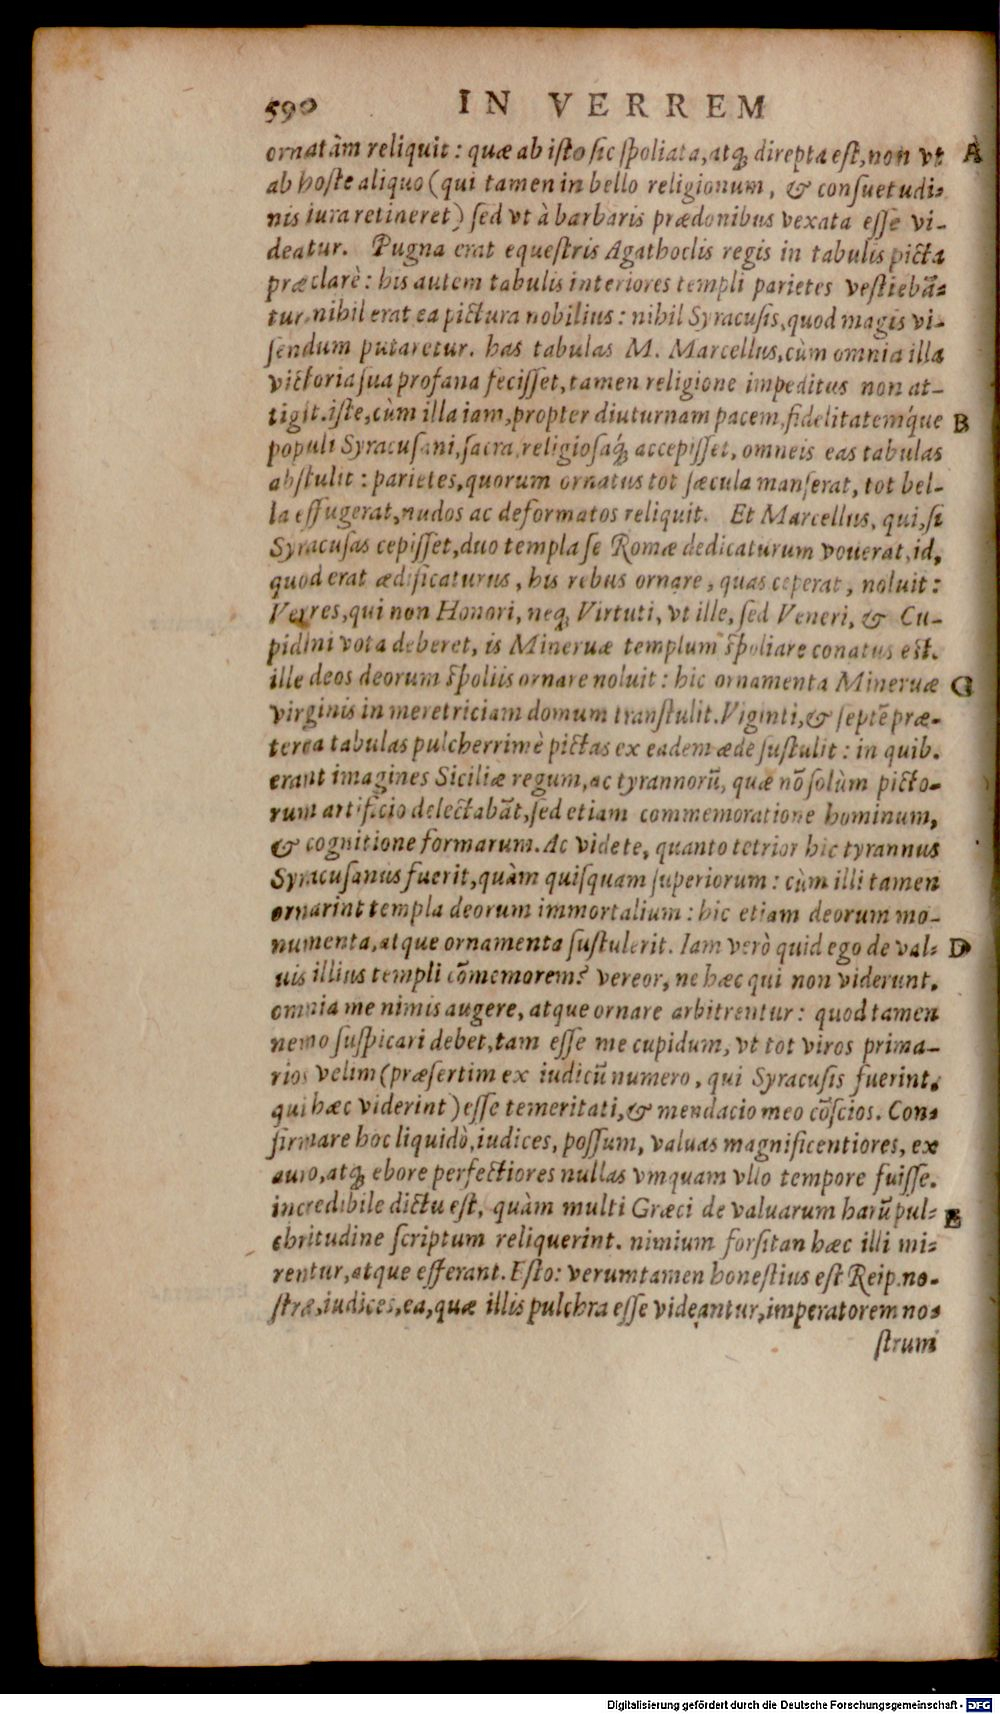 590 IN VERREM
ornatàm reliquit: quæ ab isto sic spoliata, atq; direpta est, non vt A
ab hoste aliquo (qui tamen in bello religionum, & consuetudi-
nis iura retineret) sed vt à barbaris prædonibus vexata esse vi-
deatur. Pugna erat equestris Agathoclis regis in tabulis picta
præclarè: his autem tabulis interiores templi parietes vestiebā-
tur. nihil erat ea pictura nobilius: nihil Syracusis, quod magis vi-
sendum putaretur. has tabulas M. Marcellus, cùm omnia illa
victoria sua profana fecisset, tamen religione impeditus non at-
tigit. iste, cùm illa iam, propter diuturnam pacem, fidelitatemq́ue B
populi Syracusani, sacra, religiosaq́; accepisset, omneis eas tabulas
abstulit: parietes, quorum ornatus tot sæcula manserat, tot bel-
la effugerat, nudos ac deformatos reliquit. Et Marcellus, qui, si
Syracusas cepisset, duo templa se Romæ dedicaturum vouerat, id,
quod erat ædificaturus, his rebus ornare, quas ceperat, noluit:
Verres, qui non Honori, neq; Virtuti, vt ille, sed Veneri, & Cu-
pidini vota deberet, is Mineruæ templum spoliare conatus est.
ille deos deorum spoliis ornare noluit: hic ornamenta Mineruæ C
virginis in meretriciam domum transtulit. Viginti, & septē præ-
terea tabulas pulcherrimè pictas ex eadem æde sustulit: in quib.
erant imagines Siciliæ regum, ac tyrannorū, quæ nō solùm picto-
rum artificio delectabāt, sed etiam commemoratione hominum,
& cognitione formarum. Ac videte, quanto tetrior hic tyrannus
Syracusanus fuerit, quàm quisquam superiorum: cùm illi tamen
ornarint templa deorum immortalium: hic etiam deorum mo-
numenta, atque ornamenta sustulerit. Iam verò quid ego de val- D
uis illius templi cōmemorem? vereor, ne hæc qui non viderunt,
omnia me nimis augere, atque ornare arbitrentur: quod tamen
nemo suspicari debet, tam esse me cupidum, vt tot viros prima-
rios velim (præsertim ex iudicū numero, qui Syracusis fuerint,
qui hæc viderint) esse temeritati, & mendacio meo cōscios. Con-
firmare hoc liquidò, iudices, possum, valuas magnificentiores, ex
auro, atq; ebore perfectiores nullas vmquam vllo tempore fuisse.
incredibile dictu est, quàm multi Græci de valuarum harū pul- E
chritudine scriptum reliquerint. nimium forsitan hæc illi mi-
rentur, atque efferant. Esto: verumtamen honestius est Reip. no-
stræ, iudices, ea, quæ illis pulchra esse videantur, imperatorem no-
strum
Digitalisierung gefördert durch die Deutsche Forschungsgemeinschaft - DFG